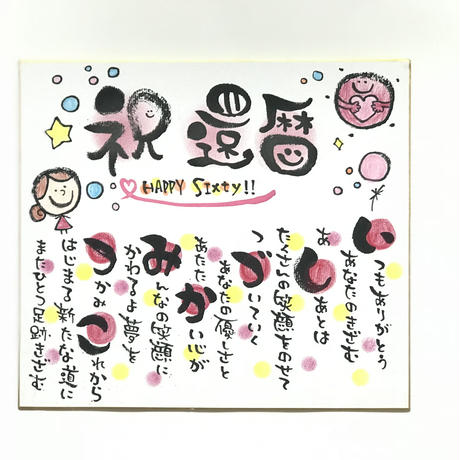 祝還暦
HAPPY Sixty!!
いつもありがとう
あなたのきざむ
あしあとは
たくさんの笑顔をのせて
つづいていく
あなたの優しさと
あたたかい心が
みんなの笑顔に
かわるよ夢を
つかみこれから
はじまる新たな道に
またひとつ足跡きざむ